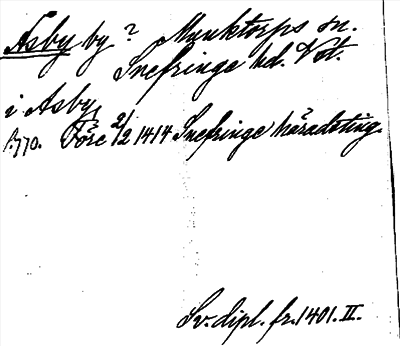 Åsby by? Munktorps sn.
Snefringe hd. Vst.
i Asby
Före 2/2 1414 Snefringe häradsting.
Sv. dipl. fr. 1401. II.